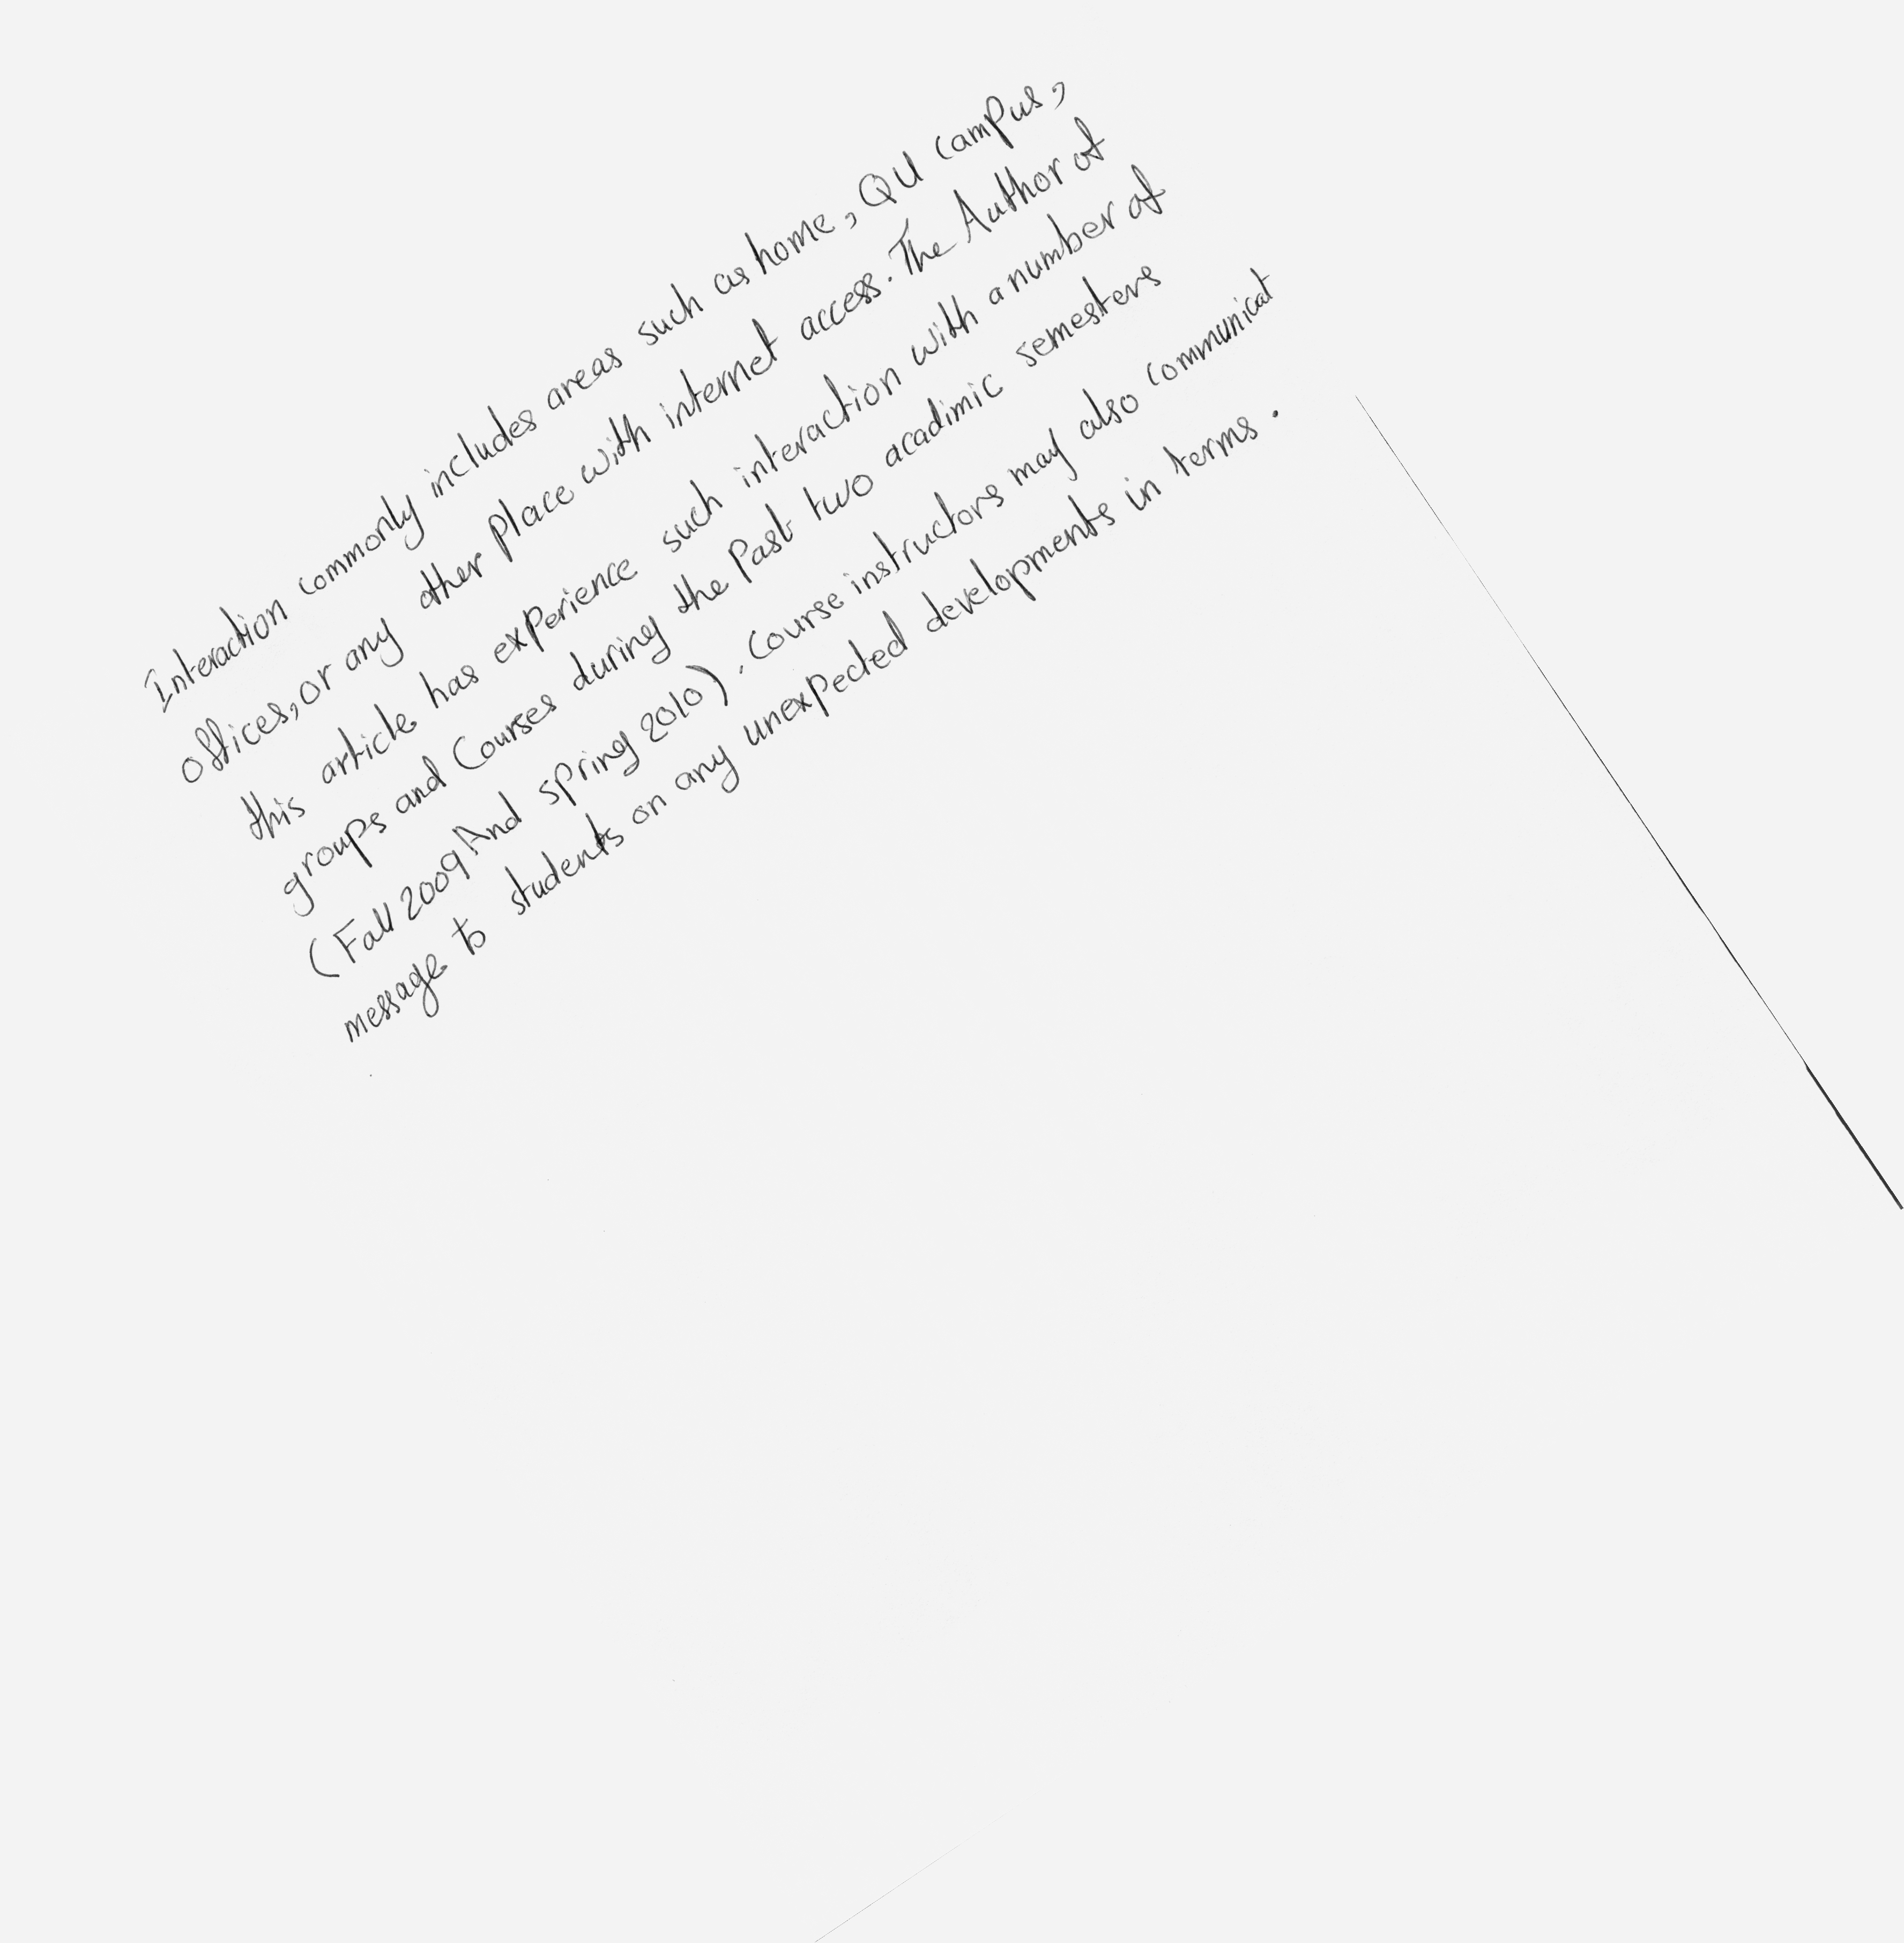 Interaction commonly includes areas such as home, QU campus,
offices, or any other place with internet access. The Author of
this article has experience such interaction with a number of
groups and Courses during the past two acadimic semesters
(Fall 2009, And spring 2010). Course instructors may also communicat
message to students on any unexpected developments in terms.